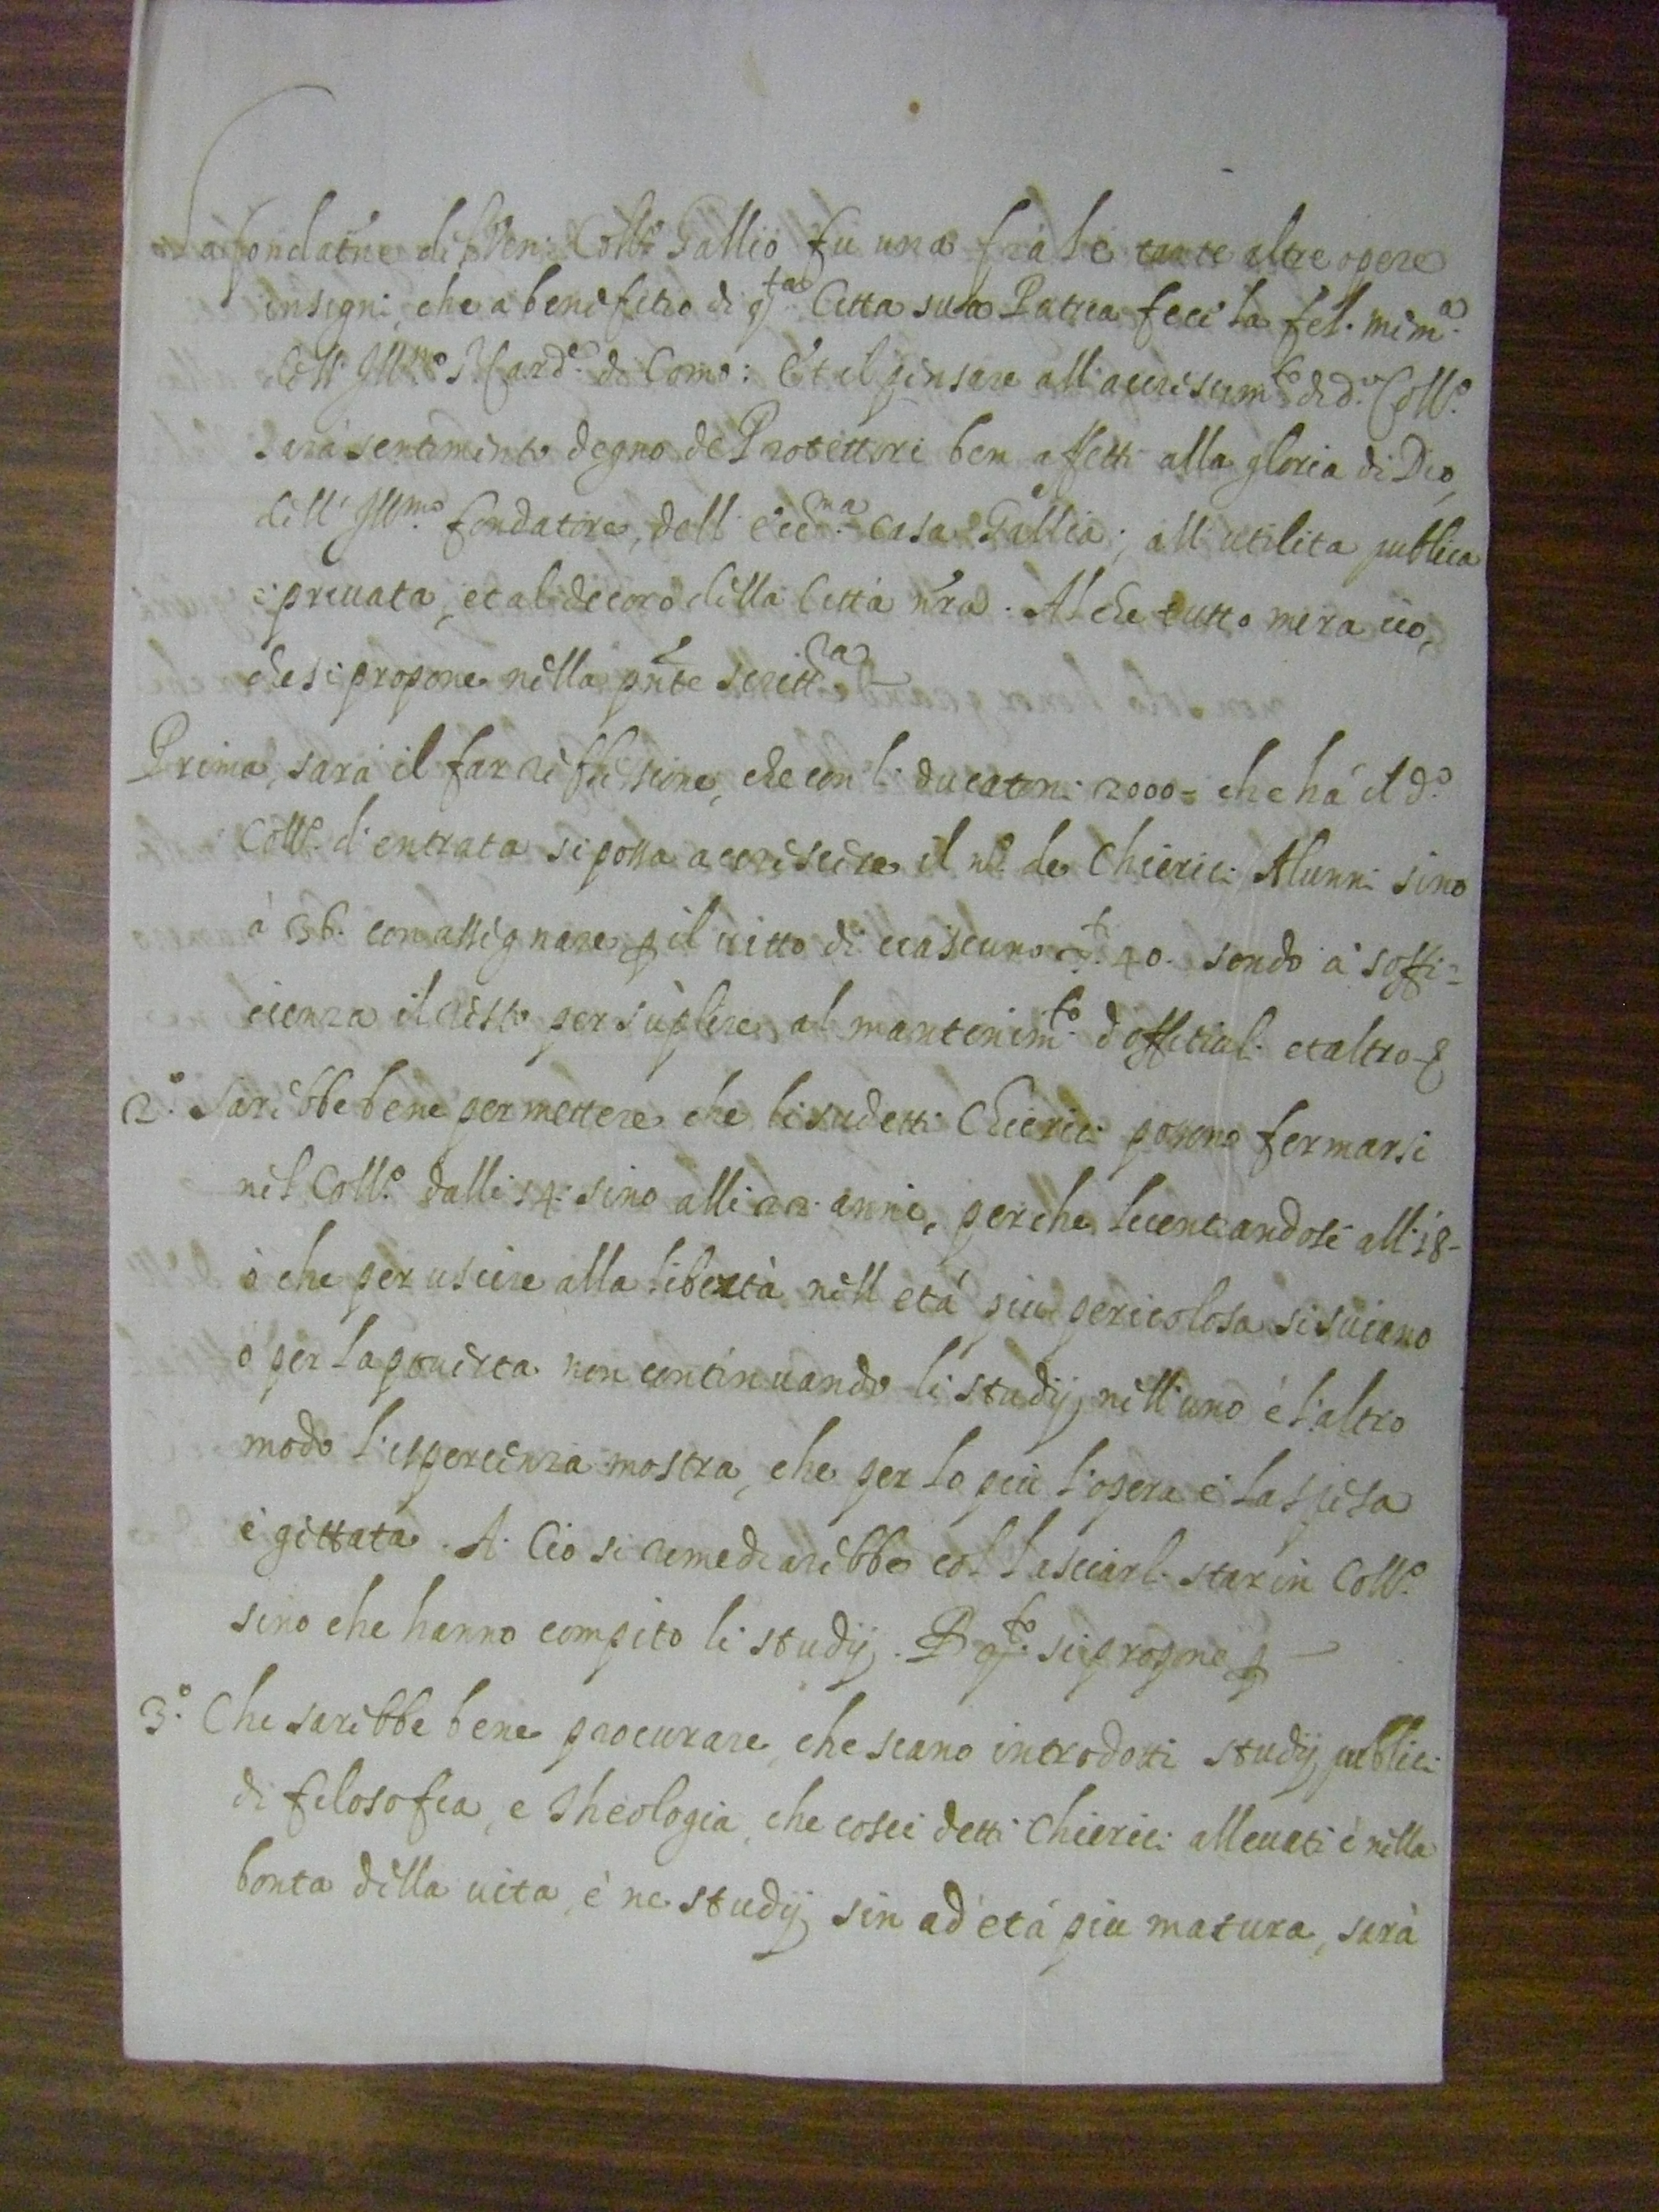 La fondatne del Ven. Collo Gallio fu una frà le tante altre opere
insigni, che a benefitio di qta Città sua Patria fece la fel. mema
dell' Illmo Sr Carde di Como: Et il pensare all' accrescimto di do Collo
sarà sentimento degno de Protettori ben affetti alla gloria di Dio,
dell' Illmo fondatore, dell' eccma casa Gallia; all' utilita publica
e privata, et al decoro della Città nra. Al che tutto mira ciò,
che si propone nella pnte scrittra
Prima, sarà il far riflessione, che con li ducatoni 2000= che hà il do
Collo d'entrata si possa accrescere il no de Chierici Alunni sino
à 36. con assignare p il vitto di ciascuno 40. sendo à soffi=
cienza il resto per suplire al mantenimto d'offitiali et altro
2o Sarebbe bene permettere che li sudetti Chierici possono fermarsi
nel Collo dalli 14. sino alli 22 anni, perche licentiandosi all' 18-
ò che per uscire alla libertà nell età piu pericolosa si sviano
ò per la poverta non continuando li studij, nell' uno è l'altro
modo l'esperienza mostra, che per lo più l'opera e la spesa
è gittata. A Ciò si remediarebbe col lasciarli star in Collo
sino che hanno compito li studij. P qto si propone p
3o Che sarebbe bene procurare, che siano introdotti studij publici
di filosofia, e Theologia, che cosi detti Chierici allevati è nella
bonta della vita, è ne studij sin ad età più matura, sarà